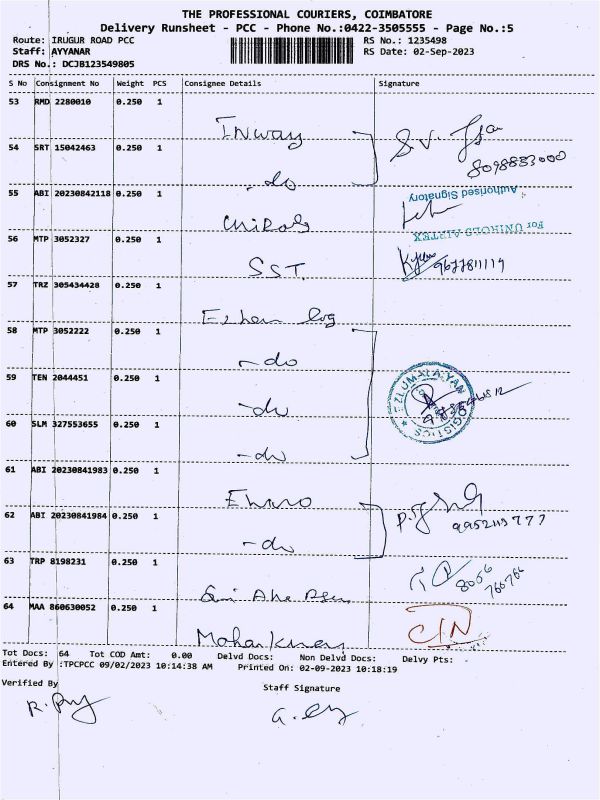 THE PROFESSIONAL COURIERS, COIMBATORE
Delivery Runsheet - PCC - Phone No.:0422-3505555 - Page No.:5
Route: IRUGUR ROAD PCC RS No.: 1235498
Staff: AYYANAR RS Date: 02-Sep-2023
DRS No.: DCJB123549805
S No Consignment No Weight PCS Consignee Details Signature
53 RMD 2280010 0.250 1
Inway S.V.
54 SRT 15042463 0.250 1
8098883000
- do
55 ABI 20230842118 0.250 1
Authorised Signatory
UniRols
For UNIROLS AIRTEX
56 MTP 3052327 0.250 1
SST. 9677811119
57 TRZ 305434428 0.250 1
58 MTP 3052222 0.250 1
- do
59 TEN 2044451 0.250 1
EZLUMALAIYAN LOGISTICS
- do
60 SLM 327553655 0.250 1
- do
61 ABI 20230841983 0.250 1
62 ABI 20230841984 0.250 1
- do
63 TRP 8198231 0.250 1
8056
766766
64 MAA 860630052 0.250 1
Tot Docs: 64 Tot COD Amt: 0.00 Delvd Docs: Non Delvd Docs: Delvy Pts: -
Entered By :TPCPCC 09/02/2023 10:14:38 AM Printed On: 02-09-2023 10:18:19
Verified By
Staff Signature